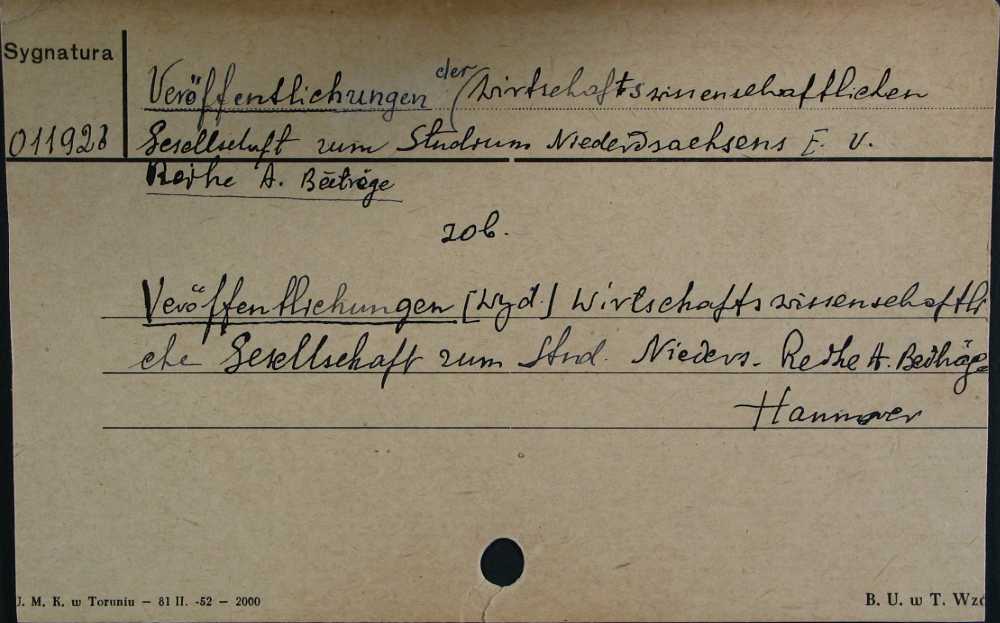 Sygnatura
Veröffentlichungen der (Wirtschaftswissenschaftlichen
011928 Gesellschaft zum Studium Niedersachsens E. V.
Reihe A. Beiträge
zob.
Veröffentlichungen [Wyd.] Wirtschaftswissenschaftli
che Gesellschaft zum Stud. Nieders. Reihe A. Beiträge
Hannover
J. M. K. w Toruniu — 81 II. -52 — 2000
B. U. w T. Wzó